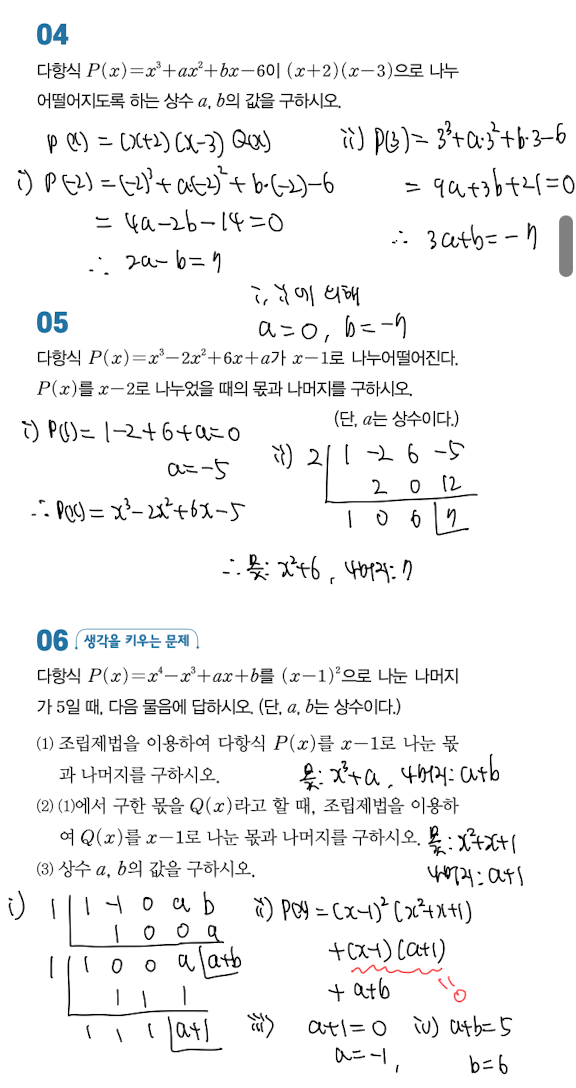 04
다항식 P(x)=x³+ax²+bx-6이 (x+2)(x-3)으로 나누
어떨어지도록 하는 상수 a, b의 값을 구하시오.
P(x) = (x+2)(x-3) Q(x)
i) P(-2) = (-2)³ + a·(-2)² + b·(-2) - 6
= 4a - 2b - 14 = 0
∴ 2a - b = 7
ii) P(3) = 3³ + a·3² + b·3 - 6
= 9a + 3b + 21 = 0
∴ 3a + b = -7
i, ii에 의해
a = 0, b = -7
05
다항식 P(x)=x³-2x²+6x+a가 x-1로 나누어떨어진다.
P(x)를 x-2로 나누었을 때의 몫과 나머지를 구하시오.
(단, a는 상수이다.)
i) P(1) = 1-2+6+a=0
a = -5
∴ P(x) = x³-2x²+6x-5
ii) 2 1 -2 6 -5
2 0 12
1 0 6 7
∴ 몫: x²+6, 나머지: 7
06 생각을 키우는 문제
다항식 P(x)=x⁴-x³+ax+b를 (x-1)²으로 나눈 나머지
가 5일 때, 다음 물음에 답하시오. (단, a, b는 상수이다.)
(1) 조립제법을 이용하여 다항식 P(x)를 x-1로 나눈 몫
과 나머지를 구하시오. 몫: x³+a, 나머지: a+b
(2) (1)에서 구한 몫을 Q(x)라고 할 때, 조립제법을 이용하
여 Q(x)를 x-1로 나눈 몫과 나머지를 구하시오. 몫: x²+x+1
나머지: a+1
(3) 상수 a, b의 값을 구하시오.
i) 1 1 -1 0 a b
1 0 0 a
1 1 0 0 a a+b
1 1 1
1 1 1 a+1
ii) P(x) = (x-1)² (x²+x+1)
+(x-1)(a+1)
+ a+b
" 0
iii) a+1 = 0
a = -1,
iv) a+b = 5
b = 6